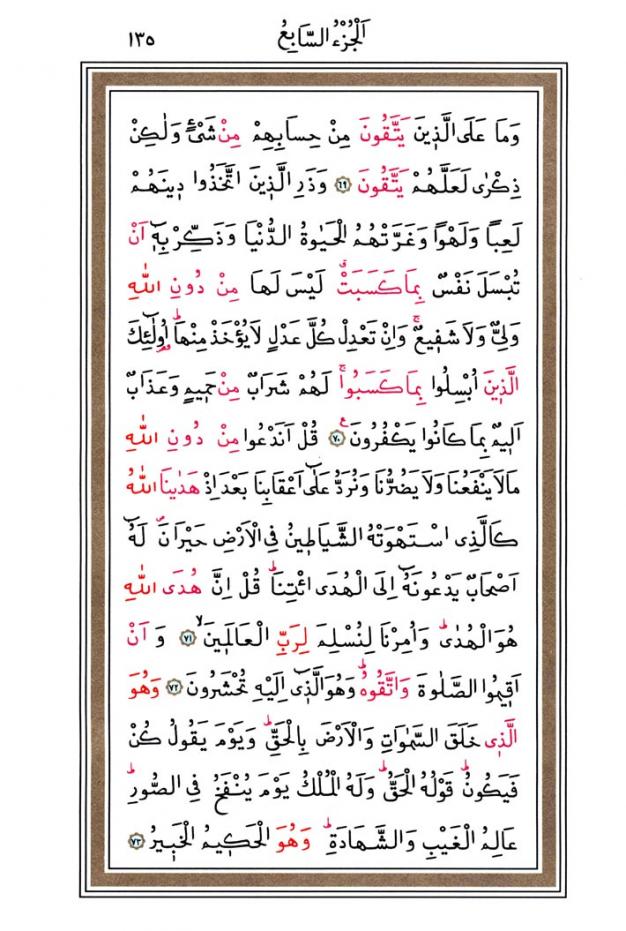 اَلْجُزْءُ السَّابِعُ ١٣٥
وَمَا عَلَى الَّذٖينَ يَتَّقُونَ مِنْ حِسَابِهِمْ مِنْ شَیْءٍ وَلٰكِنْ
ذِكْرٰى لَعَلَّهُمْ يَتَّقُونَ ﴿٦٩﴾ وَذَرِ الَّذٖينَ اتَّخَذُوا دٖينَهُمْ
لَعِبًا وَلَهْوًا وَغَرَّتْهُمُ الْحَيٰوةُ الدُّنْيَا وَذَكِّرْ بِهٖٓ اَنْ
تُبْسَلَ نَفْسٌ بِمَا كَسَبَتْۗ لَيْسَ لَهَا مِنْ دُونِ اللّٰهِ
وَلِیٌّ وَلَا شَفٖيعٌۚ وَاِنْ تَعْدِلْ كُلَّ عَدْلٍ لَا يُؤْخَذْ مِنْهَاۜ اُولٰٓئِكَ
الَّذٖينَ اُبْسِلُوا بِمَا كَسَبُواۚ لَهُمْ شَرَابٌ مِنْ حَمٖيمٍ وَعَذَابٌ
اَلٖيمٌ بِمَا كَانُوا يَكْفُرُونَࣖ ﴿٧٠﴾ قُلْ اَنَدْعُوا مِنْ دُونِ اللّٰهِ
مَا لَا يَنْفَعُنَا وَلَا يَضُرُّنَا وَنُرَدُّ عَلٰٓى اَعْقَابِنَا بَعْدَ اِذْ هَدٰينَا اللّٰهُ
كَالَّذِی اسْتَهْوَتْهُ الشَّيَاطٖينُ فِی الْاَرْضِ حَيْرَانَࣕ لَهُٓ
اَصْحَابٌ يَدْعُونَهُٓ اِلَى الْهُدَى ائْتِنَاۜ قُلْ اِنَّ هُدَى اللّٰهِ
هُوَ الْهُدٰىۜ وَاُمِرْنَا لِنُسْلِمَ لِرَبِّ الْعَالَمٖينَۙ ﴿٧١﴾ وَاَنْ
اَقٖيمُوا الصَّلٰوةَ وَاتَّقُوهُۜ وَهُوَ الَّذٖٓی اِلَيْهِ تُحْشَرُونَ ﴿٧٢﴾ وَهُوَ
الَّذٖی خَلَقَ السَّمٰوَاتِ وَالْاَرْضَ بِالْحَقِّۜ وَيَوْمَ يَقُولُ كُنْ
فَيَكُونُۜ قَوْلُهُ الْحَقُّۜ وَلَهُ الْمُلْكُ يَوْمَ يُنْفَخُ فِی الصُّورِۜ
عَالِمُ الْغَيْبِ وَالشَّهَادَةِۜ وَهُوَ الْحَكٖيمُ الْخَبٖيرُ ﴿٧٣﴾